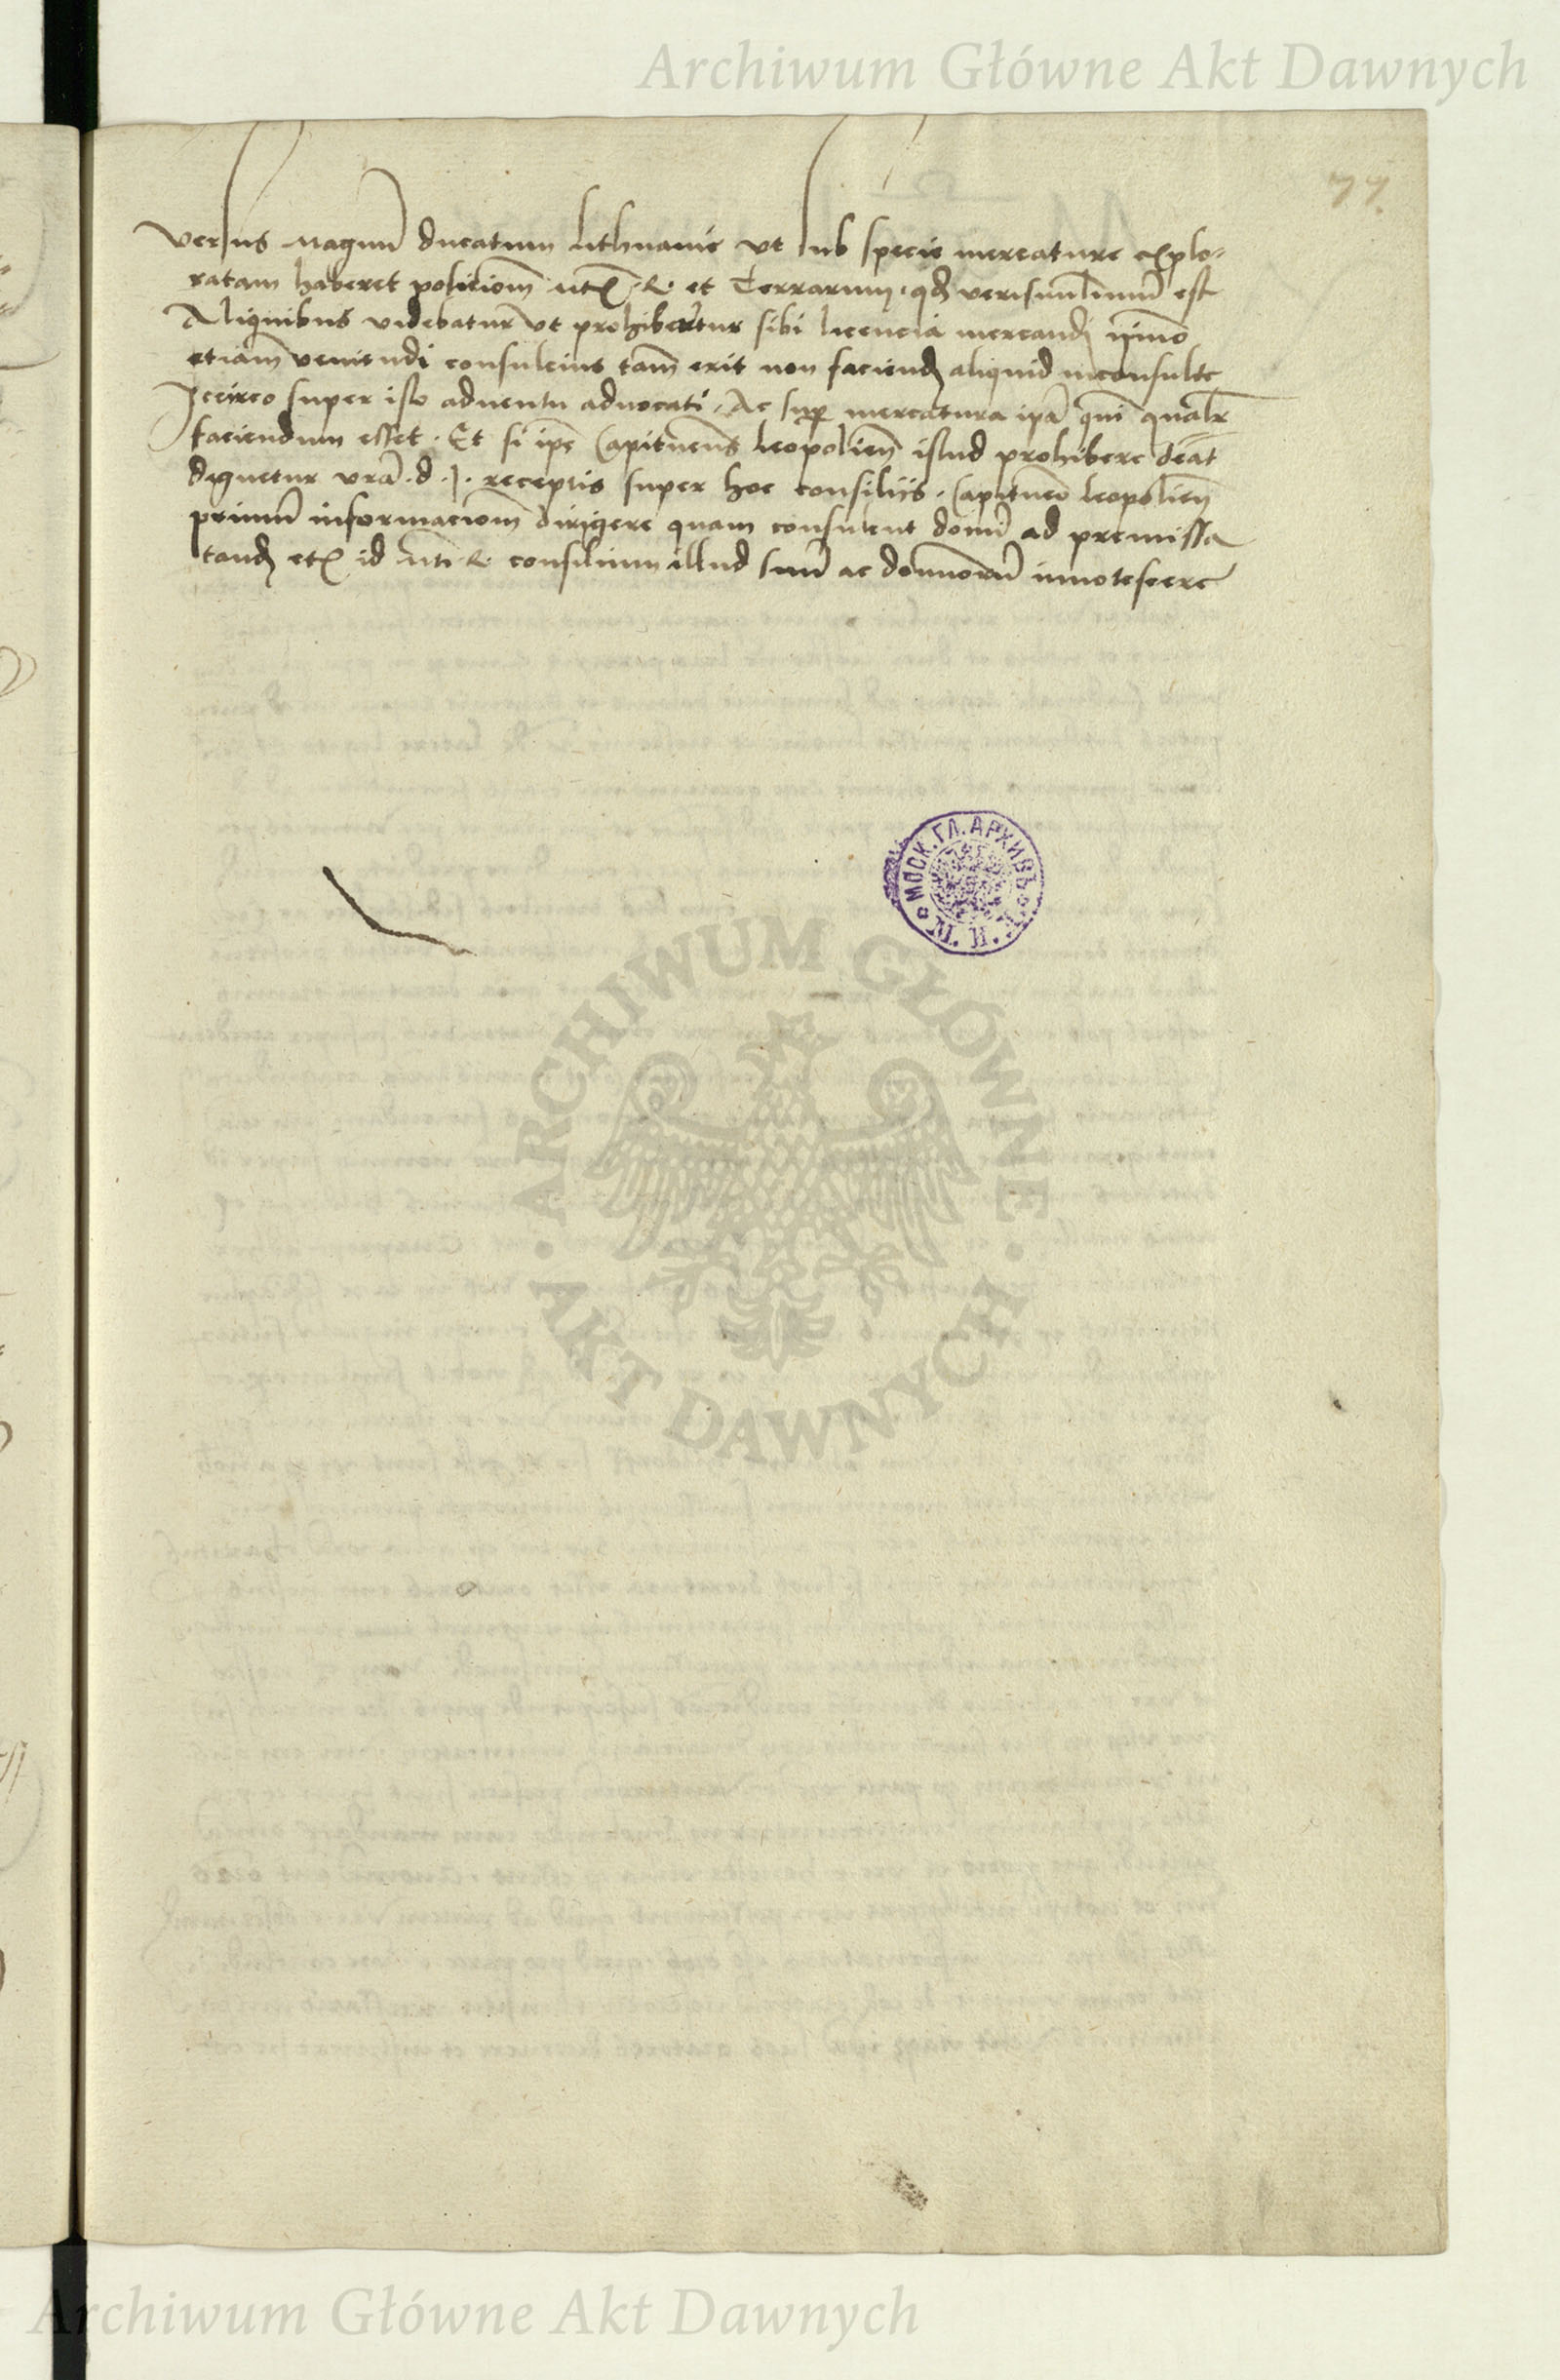 Archiwum Główne Akt Dawnych
77.
versus Magnũ ducatum lithuanie vt sub specie mercature explo-
ratam haberet positionẽ et Terrarum. qd verisimilimũ est
Aliquibus videbatur vt prohibertur sibi licencia mercandi ymo
etiam veniendi consulcius tam̃ erit non faciend aliquid inconsulte
Iccirco super isto aduentu aduocati. Ac sup mercatura ipã qũi qualr̃
faciendum esset. Et si ip̃e Capitneus leopolieñ istud prohibere debeat
dignetur vrã. d. J. receptis super hoc consiliis. Capitneo leopolieñ
primũ informacionẽ dirigere quam consulent domĩ ad premissa
tand id consilium illud suũ ac dominorũ innotescere
МОСК. ГЛ. АРХИВЪ
М. И.
ARCHIWUM GŁÓWNE
AKT DAWNYCH
Archiwum Główne Akt Dawnych